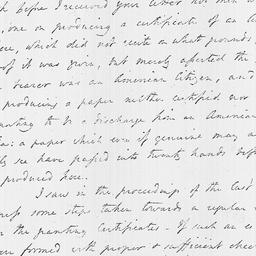 before I received your letter not
one on producing a certificate of an
which did not recite on what grounds
of it was given, but merely asserted the
bearer was an American Citizen, and
producing a paper neither certified nor
to be a discharge from an American
a paper which even if genuine may
have passed into twenty hands before
produced here.
I saw in the proceedings of the last
some steps taken towards a regular
the granting Certificates. If such an
formed with proper & sufficient